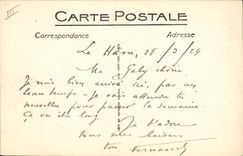 III
CARTE POSTALE
Correspondance Adresse
Le Havre, 28/3/24
Ma Gaby chérie
Je suis bien arrivé ici, par un
beau temps. Je vais attendre tes
nouvelles pour passer la semaine.
Ça va du
Je t'adore
Tous mes baisers
ton Fernand